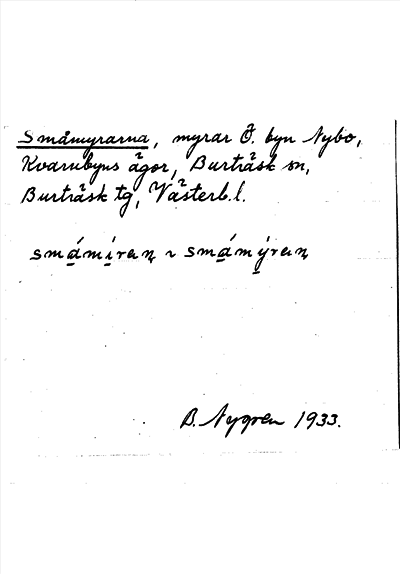 Småmyrarna, myrar Ö. byn Nybo,
Kvarnbyns ägor, Burträsk sn,
Burträsk tg, Västerb. l.
B. Nygren 1933.